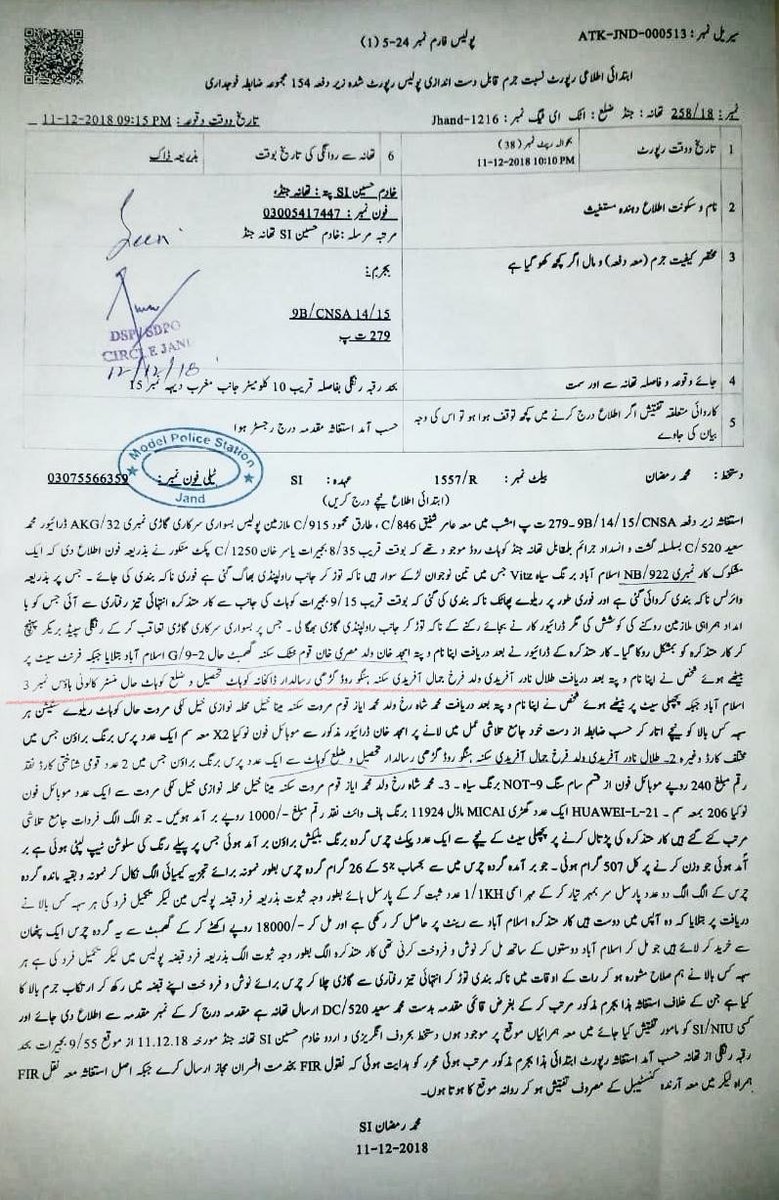 سیریل نمبر: ATK-JND-000513
پولیس فارم نمبر 24-5 (۱)
ابتدائی اطلاعی رپورٹ نسبت جرم قابل دست اندازی پولیس رپورٹ شدہ زیر دفعہ 154 مجموعہ ضابطہ فوجداری
نمبر: 258/18 تھانہ: جنڈ ضلع: اٹک ای ٹیگ نمبر: Jhand-1216 تاریخ ووقت وقوعہ: 11-12-2018 09:15 PM
1 تاریخ ووقت رپورٹ بحوالہ رپٹ نمبر (38) 11-12-2018 10:10 PM 6 تھانہ سے روانگی کی تاریخ بوقت بذریعہ ڈاک
2 نام و سکونت اطلاع دہندہ مستغیث خادم حسین SI پتہ: تھانہ جنڈ،
فون نمبر: 03005417447
مرتبہ مرسلہ: خادم حسین SI تھانہ جنڈ
3 مختصر کیفیت جرم (معہ دفعہ) و مال اگر کچھ کھو گیا ہے بجرم:
9B/CNSA 14/15
279 ت پ
Seen
DSP/SDPO
CIRCLE JAND
12/12/18
4 جائے وقوعہ و فاصلہ تھانہ سے اور سمت بحد رقبہ رنگلی بفاصلہ قریب 10 کلومیٹر جانب مغرب دیہہ نمبر 15
5 کاروائی متعلقہ تفتیش اگر اطلاع درج کرنے میں کچھ توقف ہوا ہو تو اس کی وجہ بیان کی جاوے حسب آمد استغاثہ مقدمہ درج رجسٹر ہوا
Model Police Station
Jand
دستخط: محمد رمضان بیلٹ نمبر: 1557/R عہدہ: SI ٹیلی فون نمبر: 03075566359
(ابتدائی اطلاع نیچے درج کریں)
استغاثہ زیر دفعہ 9B/14/15/CNSA۔279 ت پ امشب میں معہ عامر شفیق 846/C، طارق محمود 915/C ملازمین پولیس بسواری سرکاری گاڑی نمبری AKG/32 ڈرائیور محمد
سعید 520/C بسلسلہ گشت و انسداد جرائم بلمقابل تھانہ جنڈ کوہاٹ روڈ موجود تھے کہ بوقت قریب 8/35 بجیرات یاسر خان 1250/C پکٹ منکور نے بذریعہ فون اطلاع دی کہ ایک
مشکوک کار نمبری NB/922 اسلام آباد برنگ سیاہ Vitz جس میں تین نوجوان لڑکے سوار ہیں ناکہ توڑ کر جانب راولپنڈی بھاگ گئی ہے فوری ناکہ بندی کی جائے۔ جس پر بذریعہ
وائرلس ناکہ بندی کروائی گئی ہے اور فوری طور پر ریلوے پھاٹک ناکہ بندی کی گئی کہ بوقت قریب 9/15 بجیرات کوہاٹ کی جانب سے کار متذکرہ انتہائی تیز رفتاری سے آئی جس کو با
امداد ہمراہی ملازمین روکنے کی کوشش کی مگر ڈرائیور کار نے بجائے رکنے کے ناکہ توڑ کر جانب راولپنڈی گاڑی بھگا لی۔ جس پر بسواری سرکاری گاڑی تعاقب کر کے رنگلی سپیڈ بریکر پہنچ
کر کار متذکرہ کو بمشکل روکا گیا۔ کار متذکرہ کے ڈرائیور نے بعد دریافت اپنا نام و پتہ امجد خان ولد مصری خان قوم خٹک سکنہ گھمبٹ حال G/9-2 اسلام آباد بتلایا جبکہ فرنٹ سیٹ پر
بیٹھے ہوئے شخص نے اپنا نام و پتہ بعد دریافت طلال نادر آفریدی ولد فرخ جمال آفریدی سکنہ ہنگو روڈ گڑھی رسالدار ڈاکخانہ کوہاٹ تحصیل و ضلع کوہاٹ حال منسٹر کالونی ہاؤس نمبر 3
اسلام آباد جبکہ پچھلی سیٹ پر بیٹھے ہوئے شخص نے اپنا نام و پتہ بعد دریافت محمد شاہ رخ ولد محمد ایاز قوم مروت سکنہ مینا خیل محلہ نوازی خیل لکی مروت حال کوہاٹ ریلوے سٹیشن ہر
سہہ کس بالا کو نیچے اتار کر حسب ضابطہ از دست خود جامع تلاشی عمل میں لانے پر امجد خان ڈرائیور مذکور سے موبائل فون نوکیا X2 معہ سم ایک عدد پرس برنگ براؤن جس میں
مختلف کارڈ وغیرہ 2۔ طلال نادر آفریدی ولد فرخ جمال آفریدی سکنہ ہنگو روڈ گڑھی رسالدار تحصیل و ضلع کوہاٹ سے ایک عدد پرس برنگ براؤن جس میں 2 عدد قومی شناختی کارڈ نقد
رقم مبلغ 240 روپے موبائل فون از قسم سام سنگ NOT-9 برنگ سیاہ۔ 3۔ محمد شاہ رخ ولد محمد ایاز قوم مروت سکنہ مینا خیل محلہ نوازی خیل لکی مروت سے ایک عدد موبائل فون
نوکیا 206 بمعہ سم۔ HUAWEI-L-21 ایک عدد گھڑی MICAI ماڈل 11924 برنگ ہاف وائٹ نقد رقم مبلغ -/1000 روپے برآمد ہوئیں۔ جو الگ الگ فردات جامع تلاشی
مرتب کئے گئے ہیں کار متذکرہ کی پڑتال کرنے پر پچھلی سیٹ کے نیچے سے ایک عدد پیکٹ چرس گردہ برنگ بلیکش براؤن برآمد ہوئی جس پر پیلے رنگ کی سلوشن ٹیپ لپٹی ہوئی ہے بر
آمد ہوئی جو وزن کرنے پر کل 507 گرام ہوئی۔ جو برآمدہ گردہ چرس میں سے بحساب 5% کے 26 گرام گردہ چرس بطور نمونہ برائے تجزیہ کیمیائی الگ نکال کر نمونہ و بقیہ ماندہ گردہ
چرس کے الگ الگ دو عدد پارسل سربمہر تیار کر کے مہر اسمی 1/1KH عدد ثبت کر کے پارسل ہائے بطور وجہ ثبوت بذریعہ فرد قبضہ پولیس میں لیکر تکمیل فرد کی ہر سہہ کس بالا نے
دریافت پر بتلایا کہ وہ آپس میں دوست ہیں کار متذکرہ اسلام آباد سے رینٹ پر حاصل کر رکھی ہے اور مل کر -/18000 روپے اکٹھے کر کے گھمبٹ سے یہ گردہ چرس ایک پٹھان
سے خرید کر لائے ہیں جو مل کر اسلام آباد دوستوں کے ساتھ مل کر نوش و فروخت کرنی تھی کار متذکرہ الگ بطور وجہ ثبوت الگ بذریعہ فرد قبضہ پولیس میں لیکر تکمیل فرد کی ہے ہر
سہہ کس بالا نے ہم صلاح مشورہ ہو کر رات کے اوقات میں ناکہ بندی توڑ کر انتہائی تیز رفتاری سے گاڑی چلا کر چرس برائے نوش و فروخت اپنے قبضہ میں رکھ کر ارتکاب جرم بالا کا
کیا ہے جن کے خلاف استغاثہ ہذا بجرم مذکور مرتب کر کے بغرض قائمی مقدمہ بدست محمد سعید DC/520 ارسال تھانہ ہے مقدمہ درج کر کے نمبر مقدمہ سے اطلاع دی جائے اور
کسی SI/NIU کو مامور تفتیش کیا جائے میں معہ ہمراہیاں موقع پر موجود ہوں دستخط بحروف انگریزی و اردو خادم حسین SI تھانہ جنڈ مورخہ 11.12.18 از موقع 9/55 بجیرات بحد
رقبہ رنگلی از تھانہ حسب آمد استغاثہ رپورٹ ابتدائی ہذا بجرم مذکور مرتب ہوئی محرر کو ہدایت ہوئی کہ نقول FIR بخدمت افسران مجاز ارسال کرے جبکہ اصل استغاثہ معہ نقل FIR
ہمراہ لیکر میں معہ آرندہ کنسٹیبل کے مصروف تفتیش ہو کر روانہ موقع کا ہوتا ہوں۔
محمد رمضان SI
11-12-2018